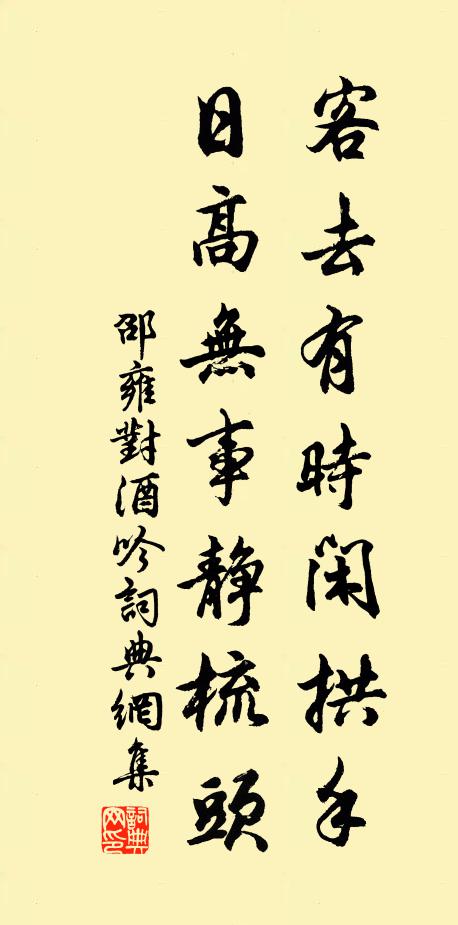 客去有時閑拱手
日高無事静梳頭
邵雍對酒吟詞典網集
詞典网印